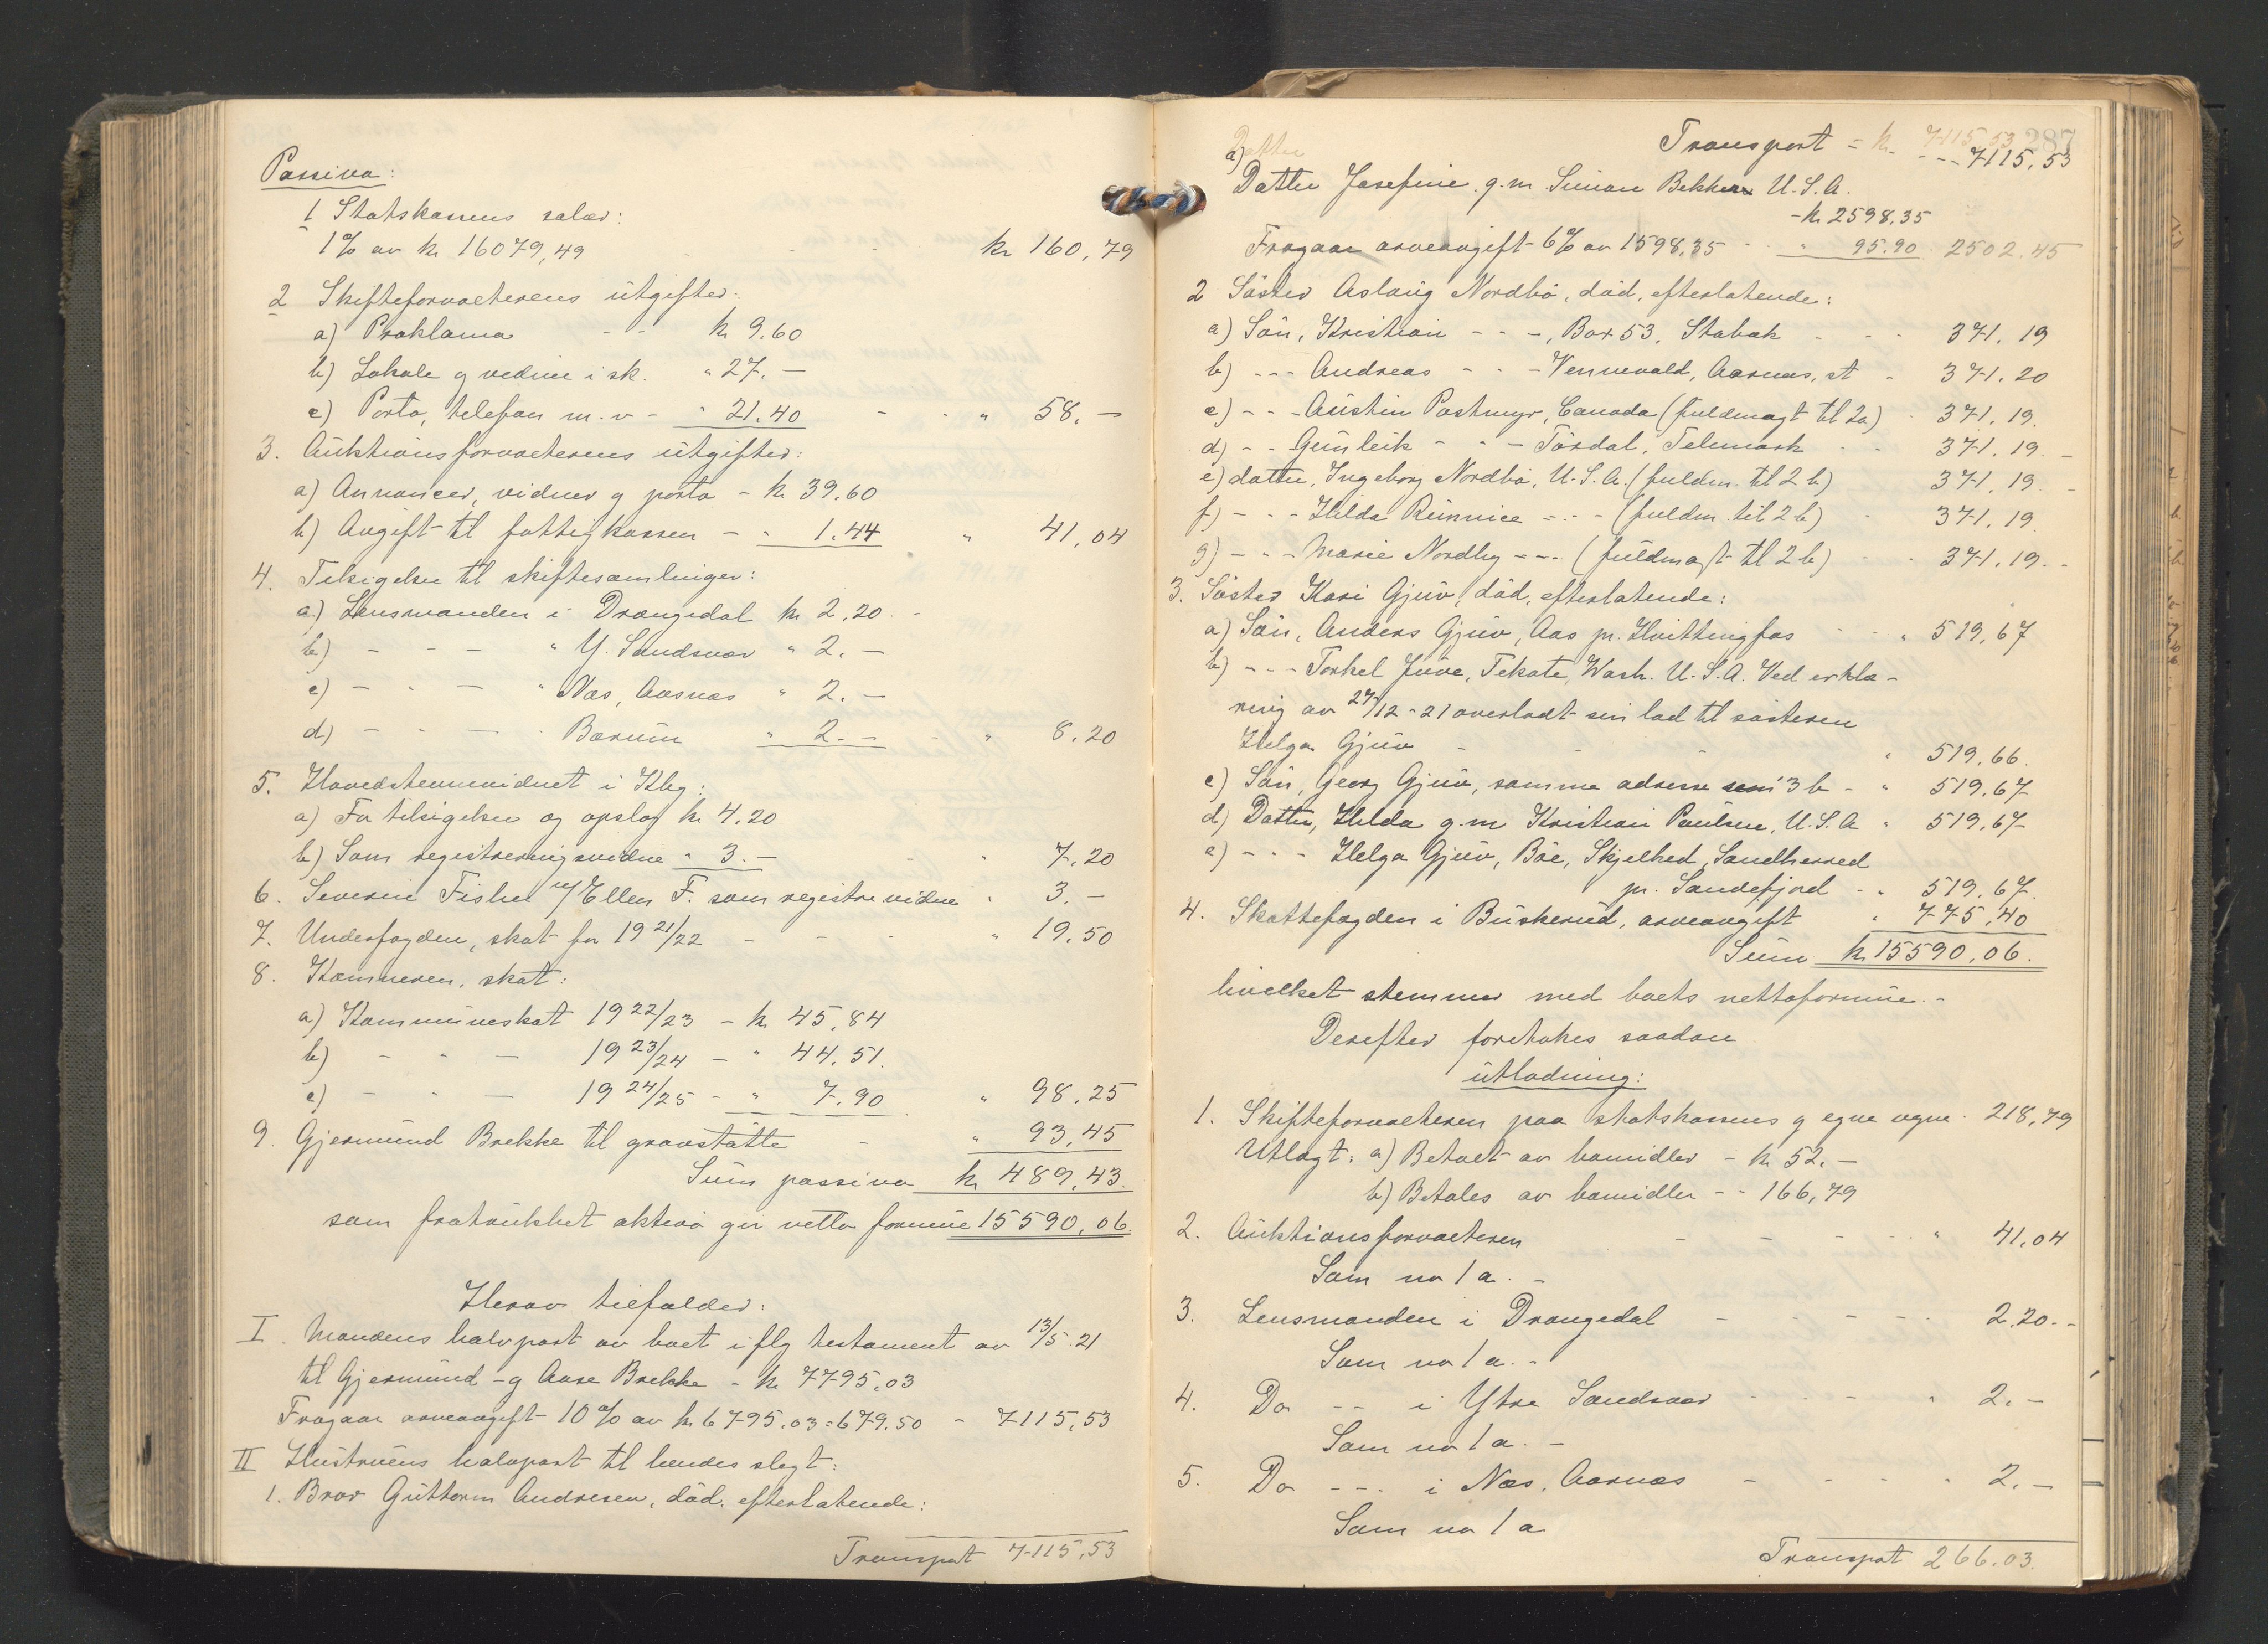 Passiva:
1 Statskassens salær:
1% av kr 16079,49 - - kr 160,79
2 Skifteforvalterens utgifter:
a) Proklama - - kr 9.60
b) Lokale og vedne i sk. " 27.—
c) Porto, telefon m.v - " 21.40 - - " 58.—
3. Auktionsforvalterens utgifter:
a) Annoncer, vidner og porto - kr 39.60
b) Avgift til fattigkassen - " 1.44 " 41,04
4. Tilsigelser til skiftesamlinger:
a) Lensmanden i Drangedal kr 2,20 -
b) - - - " Y. Sandsvær " 2.—
c) - " - " Nes, Aasnæs " 2.—
d) - " - " Bærum " 2.— - " 8,20
5. Hovedstevnevidnet i Kbg:
a) For tilsigelser og opslag kr 4.20
b) Som registreringsvidne " 3.— - " 7,20
6. Severin Fisher v/Ellen F. som registre vidne " 3.—
7. Underfogden, skat for 19 21/22 - - - " 19.50
8. Kæmneren, skat:
a) Kommuneskat 19 22/23 - kr 45,84
b) - " - 19 23/24 - " 44,51.
c) - " - 19 24/25 - " 7,90 " 98.25
9. Gjermund Brekke til gravstøtte - " 93,45
Sum passiva kr 489,43.
som fratrukket aktiva gir netto formue 15590,06.
Herav tilfalder:
I. Mandens halvpart av boet iflg testament av 13/5.21
til Gjermund - og Aase Brekke - kr 7795,03
Fragaar arveavgift 10% av kr 6795,03 = 679,50 - 7115,53
II Hustruens halvpart til hendes slegt:
1. Bror Guttorm Andresen, død, efterlatende:
Transport 7115,53
287
Transport = kr 7115,53
--- 7115,53
a) Datter Josefine g.m. Simon Bekken U.S.A.
- kr 2598,35
Fragaar arveavgift 6% av 1598,35 - " 95.90 2502.45
2 Søster Aslaug Nordbø, død, efterlatende:
a) Søn, Kristian - - -, Box 53, Stabæk - - - 371,19
b) - - - Andreas - - - Vennevold, Aarnæs, st - 371,20
c) - - - Austin Postmyr, Canada (fuldmagt til 2a) - 371,19.
d) - - Gunleik - " - Tørdal, Telemark - - 371,19.-
e) datter, Ingeborg Nordbø, U.S.A. (fuldm. til 2 b) 371,19 -
f) - - - Hilda Rünnice - - - (fuldm. til 2 b) - 371,19.
g) - - - Marie Nordby - - - (fuldmagt til 2 b) - - 371,19.-
3. Søster Kari Gjuv, død, efterlatende:
a) Søn, Anders Gjuv, Aas pr. Hvittingfos - - " 519,67
b) - - - Torkel Juve, Tekate, Wash. U.S.A. Ved erklæ-
ring av 27/12-21 overladt sin lod til søsteren
Helga Gjuv - - - " 519,66.
c) Søn, Georg Gjuv, samme adresse som 3 b - " 519,67
d) Datter, Hilda g.m Kristian Paulsen, U.S.A " 519,67
e) - - - Helga Gjuv, Bøe, Skjelhed, Sandherred
pr. Sandefjord - " 519,67.
4. Skattefogden i Buskerud, arveavgift " 775,40
Sum kr 15590,06.
hvilket stemmer med boets nettoformue.-
Derefter foretokes saadan
utlodning:
1. Skifteforvalteren paa statskassens og egne vegne - 218,79
Utlagt: a) Betalt av bomidler - kr 52.—
b) Betales av bomidler - - 166,79
2. Auktionsforvalteren - - - - " 41,04
Som no 1 a.-
3. Lensmanden i Drangedal - - - - - 2,20.-
Som no 1 a.-
4. Do - - i Ytre Sandsvær - - - " 2.—
Som no 1 a.-
5. Do - - - i Nes, Aarnæs - - - " 2.—
Som no 1 a
Transport 266.03.